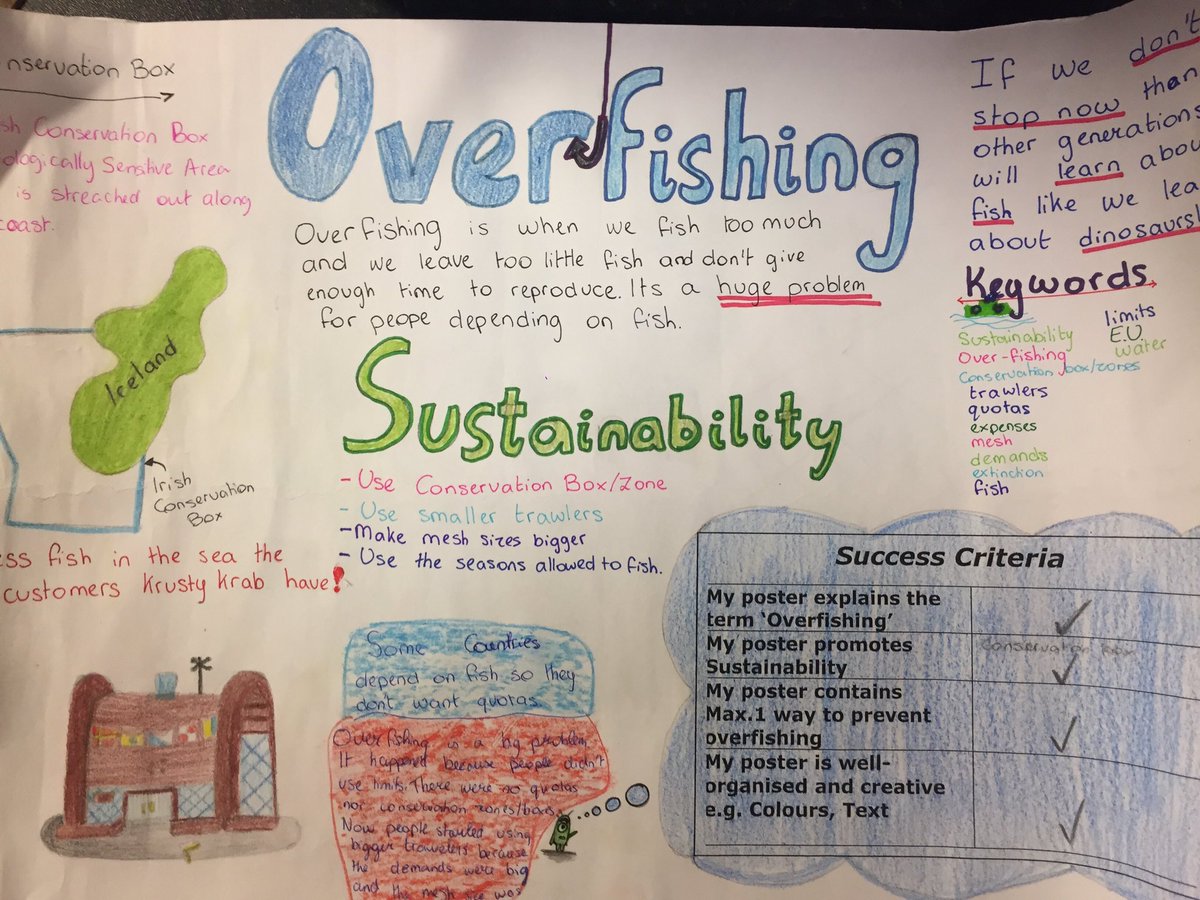 nservation Box
sh Conservation Box
ologically Sensitive Area
is streached out along
coast.
Iceland
Irish
Conservation
Box
ess fish in the sea the
customers Krusty Krab have!
Overfishing
Overfishing is when we fish too much
and we leave too little fish and don't give
enough time to reproduce. Its a huge problem
for peope depending on fish.
Sustainability
- Use Conservation Box/Zone
- Use smaller trawlers
- Make mesh sizes bigger
- Use the seasons allowed to fish.
Some Countries
depend on fish so they
don't want quotas.
Overfishing is a big problem
It happened because people didn't
use limits. There were no quotas
nor conservation zones/boxes.
Now people started using
bigger trawelers because
the demands were big
and the mesh size was
If we don't
stop now than
other generations
will learn abou
fish like we lea
about dinosaurs!
Keywords
Sustainability
Over-fishing
Conservation box/zones
trawlers
quotas
expenses
mesh
demands
extinction
fish
limits
E.U.
water
Success Criteria
My poster explains the
term 'Overfishing' ✓
My poster promotes
Sustainability Conservation Box ✓
My poster contains
Max.1 way to prevent
overfishing ✓
My poster is well-
organised and creative
e.g. Colours, Text ✓